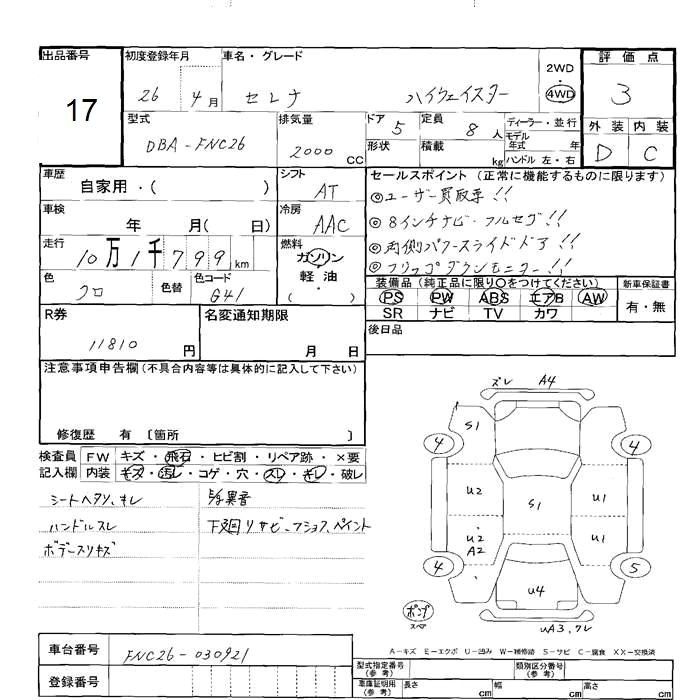 出品番号
17
初度登録年月
26 4月
車名・グレード
セレナ ハイウェイスター
2WD
・
4WD
評価点
3
外装 内装
D C
型式
DBA-FNC26
排気量
2000 CC
ドア 5
定員 8 人
ディーラー・並行
モデル
年式 年
形状
積載 kg
ハンドル 左・右
車歴
自家用・( )
シフト
AT
セールスポイント (正常に機能するものに限ります)
◎ユーザー買取車!!
◎8インチナビ・フルセグ!!
◎両側パワースライドドア!!
◎フリップダウンモニター!!
車検
年 月( 日)
冷房
AAC
走行
10万1千799km
燃料
ガソリン
・
軽油
( )
色
クロ
色替
色コード
G41
装備品 (純正品に限り○をつけてください)
PS PW ABS エアB AW
SR ナビ TV カワ
新車保証書
有・無
R券
11810 円
名変通知期限
月 日
後日品
注意事項申告欄(不具合内容等は具体的に記入して下さい)
修復歴 有 〔箇所 〕
検査員
記入欄
FW キズ・飛石・ヒビ割・リペア跡・×要
内装 キズ・汚レ・コゲ・穴・スレ・キレ・破レ
シートヘタリ、キレ
ハンドルスレ
ボデースリキズ
異音
下廻リサビ
ペイント
ズレ A4
S1
4
4
U2
S1
U1
U2
A2
U1
4
5
U4
ポンプ
スペア
UA3,ワレ
A-キズ E-エクボ U-凹み W-補修跡 S-サビ C-腐食 XX-交換済
車台番号
FNC26-030921
登録番号
型式指定番号
(参考)
類別区分番号
(参考)
車庫証明用
(参考)
長さ cm
幅 cm
高さ cm